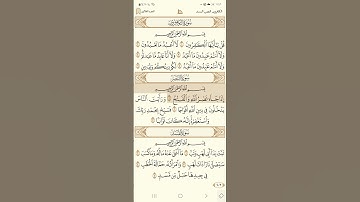 سُورَةُ الكَافِرُونَ
بِسْمِ اللَّهِ الرَّحْمَٰنِ الرَّحِيمِ
قُلْ يَا أَيُّهَا الْكَافِرُونَ ۝ لَا أَعْبُدُ مَا تَعْبُدُونَ ۝
وَلَا أَنتُمْ عَابِدُونَ مَا أَعْبُدُ ۝ وَلَا أَنَا عَابِدٌ مَّا عَبَدتُّمْ ۝
وَلَا أَنتُمْ عَابِدُونَ مَا أَعْبُدُ ۝ لَكُمْ دِينُكُمْ وَلِيَ دِينِ ۝
سُورَةُ النَّصْرِ
بِسْمِ اللَّهِ الرَّحْمَٰنِ الرَّحِيمِ
إِذَا جَاءَ نَصْرُ اللَّهِ وَالْفَتْحُ ۝ وَرَأَيْتَ النَّاسَ
يَدْخُلُونَ فِي دِينِ اللَّهِ أَفْوَاجًا ۝ فَسَبِّحْ بِحَمْدِ رَبِّكَ
وَاسْتَغْفِرْهُ إِنَّهُ كَانَ تَوَّابًا ۝
سُورَةُ المَسَدِ
بِسْمِ اللَّهِ الرَّحْمَٰنِ الرَّحِيمِ
تَبَّتْ يَدَا أَبِي لَهَبٍ وَتَبَّ ۝ مَا أَغْنَىٰ عَنْهُ مَالُهُ وَمَا كَسَبَ ۝
سَيَصْلَىٰ نَارًا ذَاتَ لَهَبٍ ۝ وَامْرَأَتُهُ حَمَّالَةَ الْحَطَبِ ۝
فِي جِيدِهَا حَبْلٌ مِّن مَّسَدٍ ۝